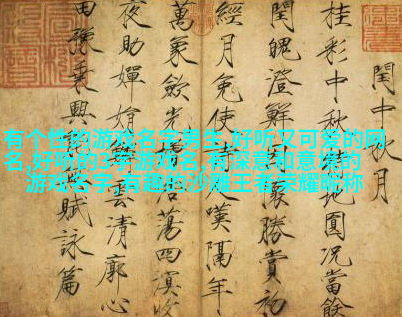 有个性的游戏名字男生,好听又可爱的网
名,好听的3字游戏名,有深意和意境的
游戏名字,有趣的沙雕王者荣耀昵称
閏中秋月
桂彩中秋地圓況當餘
閏魄澄鮮懷勝賞初
經月免使人嘆隔年
萬象斂光蕩四溟收
夜助嬋娟雲清廓心
田豫乘興賦詠篇